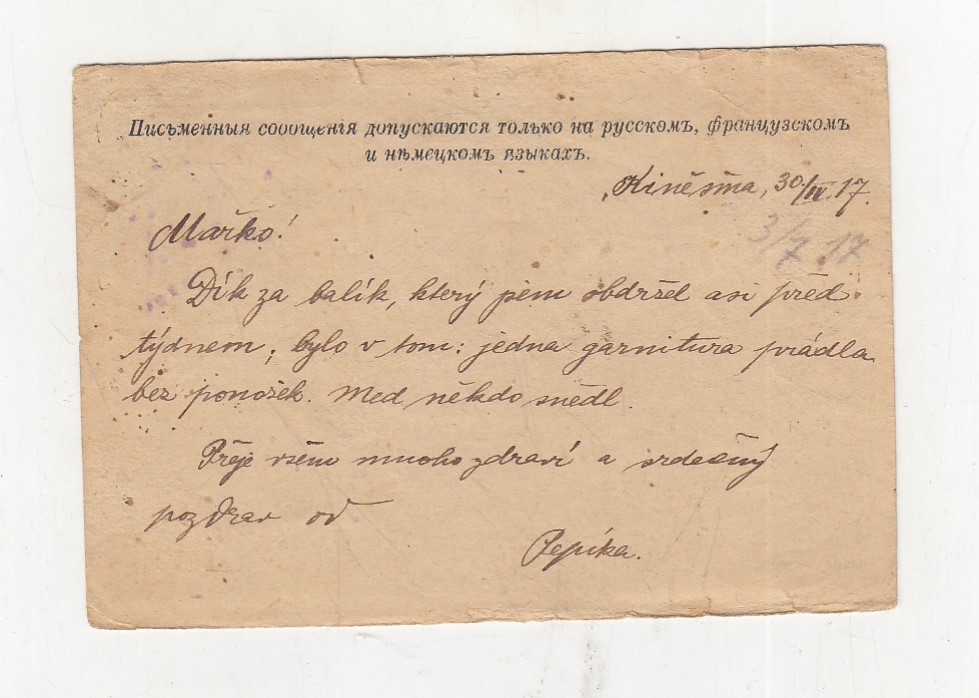 Письменныя сообщенія допускаются только на русскомъ, французскомъ
и нѣмецкомъ языкахъ.
Kiněšma, 30/IV. 17.
3/7 17
Mařko!
Dík za balík, který jsem obdržel asi před
týdnem, bylo v tom: jedna garnitura prádla
bez ponožek. Med někdo snědl.
Přeje všem mnoho zdraví a srdečný
pozdrav od
Pepíka.